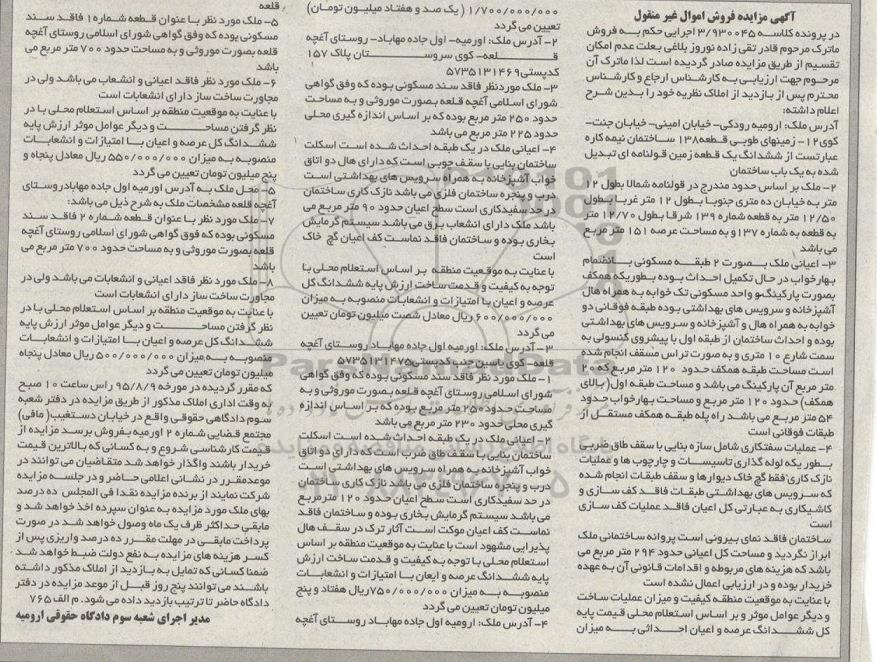 آگهی مزایده فروش اموال غیر منقول
در پرونده کلاسه ۳/۹۳۰۰۴۵ اجرایی حکم به فروش
ماترک مرحوم قادر تقی زاده نوروز بلاغی بعلت عدم امکان
تقسیم از طریق مزایده صادر گردیده است لذا ماترک آن
مرحوم جهت ارزیابی به کارشناس ارجاع و کارشناس
محترم پس از بازدید از املاک نظریه خود را بدین شرح
اعلام داشته:
آدرس ملک: ارومیه رودکی- خیابان امینی- خیابان جنت-
کوی۱۲- زمینهای طوبی- قطعه۱۳۸ ساختمان نیمه کاره
عبارتست از ششدانگ یک قطعه زمین قولنامه ای تبدیل
شده به یک باب ساختمان
۲- ملک بر اساس حدود مندرج در قولنامه شمالا بطول ۱۲
متر به خیابان ده متری جنوبا بطول ۱۲ متر غربا بطول
۱۲/۵۰ متر به قطعه شماره ۱۳۹ شرقا بطول ۱۲/۷۰ متر
به قطعه به شماره ۱۳۷ و به مساحت عرصه ۱۵۱ متر مربع
می باشد
۳- اعیانی ملک بصورت ۲ طبقه مسکونی بانضمام
بهارخواب در حال تکمیل احداث بوده بطوریکه همکف
بصورت پارکینگ و واحد مسکونی تک خوابه به همراه هال
آشپزخانه و سرویس های بهداشتی بوده طبقه فوقانی دو
خوابه به همراه هال و آشپزخانه و سرویس های بهداشتی
بوده و احداث ساختمان از طبقه اول با پیشروی کنسولی به
سمت شارع ۱۰ متری و به صورت تراس مسقف انجام شده
است مساحت طبقه همکف حدود ۱۲۰ متر مربع که ۲۰
متر مربع آن پارکینگ می باشد و مساحت طبقه اول( بالای
همکف) حدود ۱۲۰ متر مربع و مساحت بهارخواب حدود
۵۴ متر مربع می باشد راه پله طبقه همکف مستقل از
طبقات فوقانی است
۴- عملیات سفتکاری شامل سازه بنایی با سقف طاق ضربی
بطوریکه لوله گذاری تاسیسات و چارچوب ها و عملیات
نازک کاری فقط گچ خاک دیوارها و سقف طبقات انجام شده
که سرویس های بهداشتی طبقات فاقد کف سازی و
کاشیکاری به عبارتی کل اعیان فاقد عملیات کف سازی
است
ساختمان فاقد نمای بیرونی است پروانه ساختمانی ملک
ابراز نگردید و مساحت کل اعیانی حدود ۲۹۴ متر مربع می
باشد که هزینه های مربوطه و اقدامات قانونی آن به عهده
خریدار بوده و در ارزیابی اعمال نشده است
با عنایت به موقعیت منطقه کیفیت و میزان عملیات ساخت
و دیگر عوامل موثر و بر اساس استعلام محلی قیمت پایه
کل ششدانگ عرصه و اعیان احداثی به میزان
۱/۷۰۰/۰۰۰/۰۰۰ ( یک صد و هفتاد میلیون تومان)
تعیین می گردد
۲- آدرس ملک: اورمیه- اول جاده مهاباد- روستای آغچه
قلعه- کوی سروستان پلاک ۱۵۷
کدپستی۵۷۳۵۱۳۱۴۶۹
۳- ملک موردنظر فاقد سند مسکونی بوده که وفق گواهی
شورای اسلامی آغچه قلعه بصورت موروثی و به مساحت
حدود ۲۵۰ متر مربع بوده که بر اساس اندازه گیری محلی
حدود ۲۲۵ متر مربع می باشد
۴- اعیانی ملک در یک طبقه احداث شده است اسکلت
ساختمان بنایی با سقف چوبی است که دارای هال دو اتاق
خواب آشپزخانه به همراه سرویس های بهداشتی است
درب و پنجره ساختمان فلزی می باشد نازک کاری ساختمان
در حد سفیدکاری است سطح اعیان حدود ۹۰ متر مربع می
باشد ملک دارای انشعاب برق می باشد سیستم گرمایش
بخاری بوده و ساختمان فاقد نماست کف اعیان گچ خاک
است
با عنایت به موقعیت منطقه بر اساس استعلام محلی با
توجه به کیفیت و قدمت ساخت ارزش پایه ششدانگ کل
عرصه و اعیان با امتیازات و انشعابات منصوبه به میزان
۶۰۰/۰۰۰/۰۰۰ ریال معادل شصت میلیون تومان تعیین
می گردد
۳- آدرس ملک: اورمیه اول جاده مهاباد روستای آغچه
قلعه- کوی یاسین جنب کدپستی۵۷۳۵۱۳۱۴۷۵
۱- ملک مورد نظر فاقد سند مسکونی بوده که وفق گواهی
شورای اسلامی روستای آغچه قلعه بصورت موروثی و به
مساحت حدود۲۵۰ متر مربع بوده که بر اساس اندازه
گیری محلی حدود ۲۳۰ متر مربع می باشد
۲- اعیانی ملک در یک طبقه احداث شده است اسکلت
ساختمان بنایی با سقف طاق ضرب است که دارای دو اتاق
خواب آشپزخانه به همراه سرویس های بهداشتی است
درب و پنجره ساختمان فلزی می باشد نازک کاری ساختمان
در حد سفیدکاری است سطح اعیان حدود ۱۲۰ متر مربع
می باشد سیستم گرمایش بخاری بوده و ساختمان فاقد
نماست کف اعیان موکت است آثار ترک در سقف هال
پذیرایی مشهود است با عنایت به موقعیت منطقه بر اساس
استعلام محلی با توجه به کیفیت و قدمت ساخت ارزش
پایه ششدانگ عرصه و ایعان با امتیازات و انشعابات
منصوبه به میزان ۷۵۰/۰۰۰/۰۰۰ریال هفتاد و پنج
میلیون تومان تعیین می گردد
۴- آدرس ملک: ارومیه اول جاده مهاباد روستای آغچه
قلعه
۵- ملک مورد نظر با عنوان قطعه شماره۱ فاقد سند
مسکونی بوده که وفق گواهی شورای اسلامی روستای آغچه
قلعه بصورت موروثی و به مساحت حدود ۷۰۰ متر مربع می
باشد
۶- ملک مورد نظر فاقد اعیانی و انشعاب می باشد ولی در
مجاورت ساخت ساز دارای انشعابات است
با عنایت به موقعیت منطقه بر اساس استعلام محلی با در
نظر گرفتن مساحت و دیگر عوامل موثر ارزش پایه
ششدانگ کل عرصه و اعیان با امتیازات و انشعابات
منصوبه به میزان ۵۵۰/۰۰۰/۰۰۰ ریال معادل پنجاه و
پنج میلیون تومان تعیین می گردد
۵- محل ملک به آدرس اورمیه اول جاده مهابادروستای
آغچه قلعه مشخصات ملک به شرح ذیل می باشد:
۷- ملک مورد نظر با عنوان قطعه شماره ۲ فاقد سند
مسکونی بوده که فوق گواهی شورای اسلامی روستای آغچه
قلعه بصورت موروثی و به مساحت حدود ۷۰۰ متر مربع می
باشد
۸- ملک مورد نظر فاقد اعیانی و انشعابات می باشد ولی در
مجاورت ساخت ساز دارای انشعابات است
با عنایت به موقعیت منطقه بر اساس استعلام محلی با در
نظر گرفتن مساحت و دیگر عوامل موثر ارزش پایه
ششدانگ کل عرصه و اعیان با امتیازات و انشعابات
منصوبه به میزان ۵۰۰/۰۰۰/۰۰۰ ریال معادل پنجاه
میلیون تومان تعیین می گردد
که مقرر گردیده در مورخه ۹۵/۸/۹ راس ساعت ۱۰ صبح
به وقت اداری املاک مذکور از طریق مزایده در دفتر شعبه
سوم دادگاهی حقوقی واقع در خیابان دستغیب( مافی)
مجتمع قضایی شماره ۲ اورمیه بفروش برسد مزایده از
قیمت کارشناسی شروع و به کسانی که بالاترین قیمت
خریدار باشند واگذار خواهد شد متقاضیان می توانند در
موعدمقرر در نشانی اعلامی حاضر و در جلسه مزایده
شرکت نمایند از برنده مزایده نقدا فی المجلس ده درصد
بهای ملک مورد مزایده به عنوان سپرده اخذ خواهد شد و
مابقی حداکثر ظرف یک ماه وصول خواهد شد در صورت
پرداخت مابقی در مهلت مقرر ده درصد واریزی پس از
کسر هزینه های مزایده به نفع دولت ضبط خواهد شد
ضمنا کسانی که تمایل به بازدید از املاک مذکور داشته
باشند می توانند پنج روز قبل از موعد مزایده در دفتر
دادگاه حاضر تا ترتیب بازدید داده می شود. م الف ۷۶۵
مدیر اجرای شعبه سوم دادگاه حقوقی ارومیه